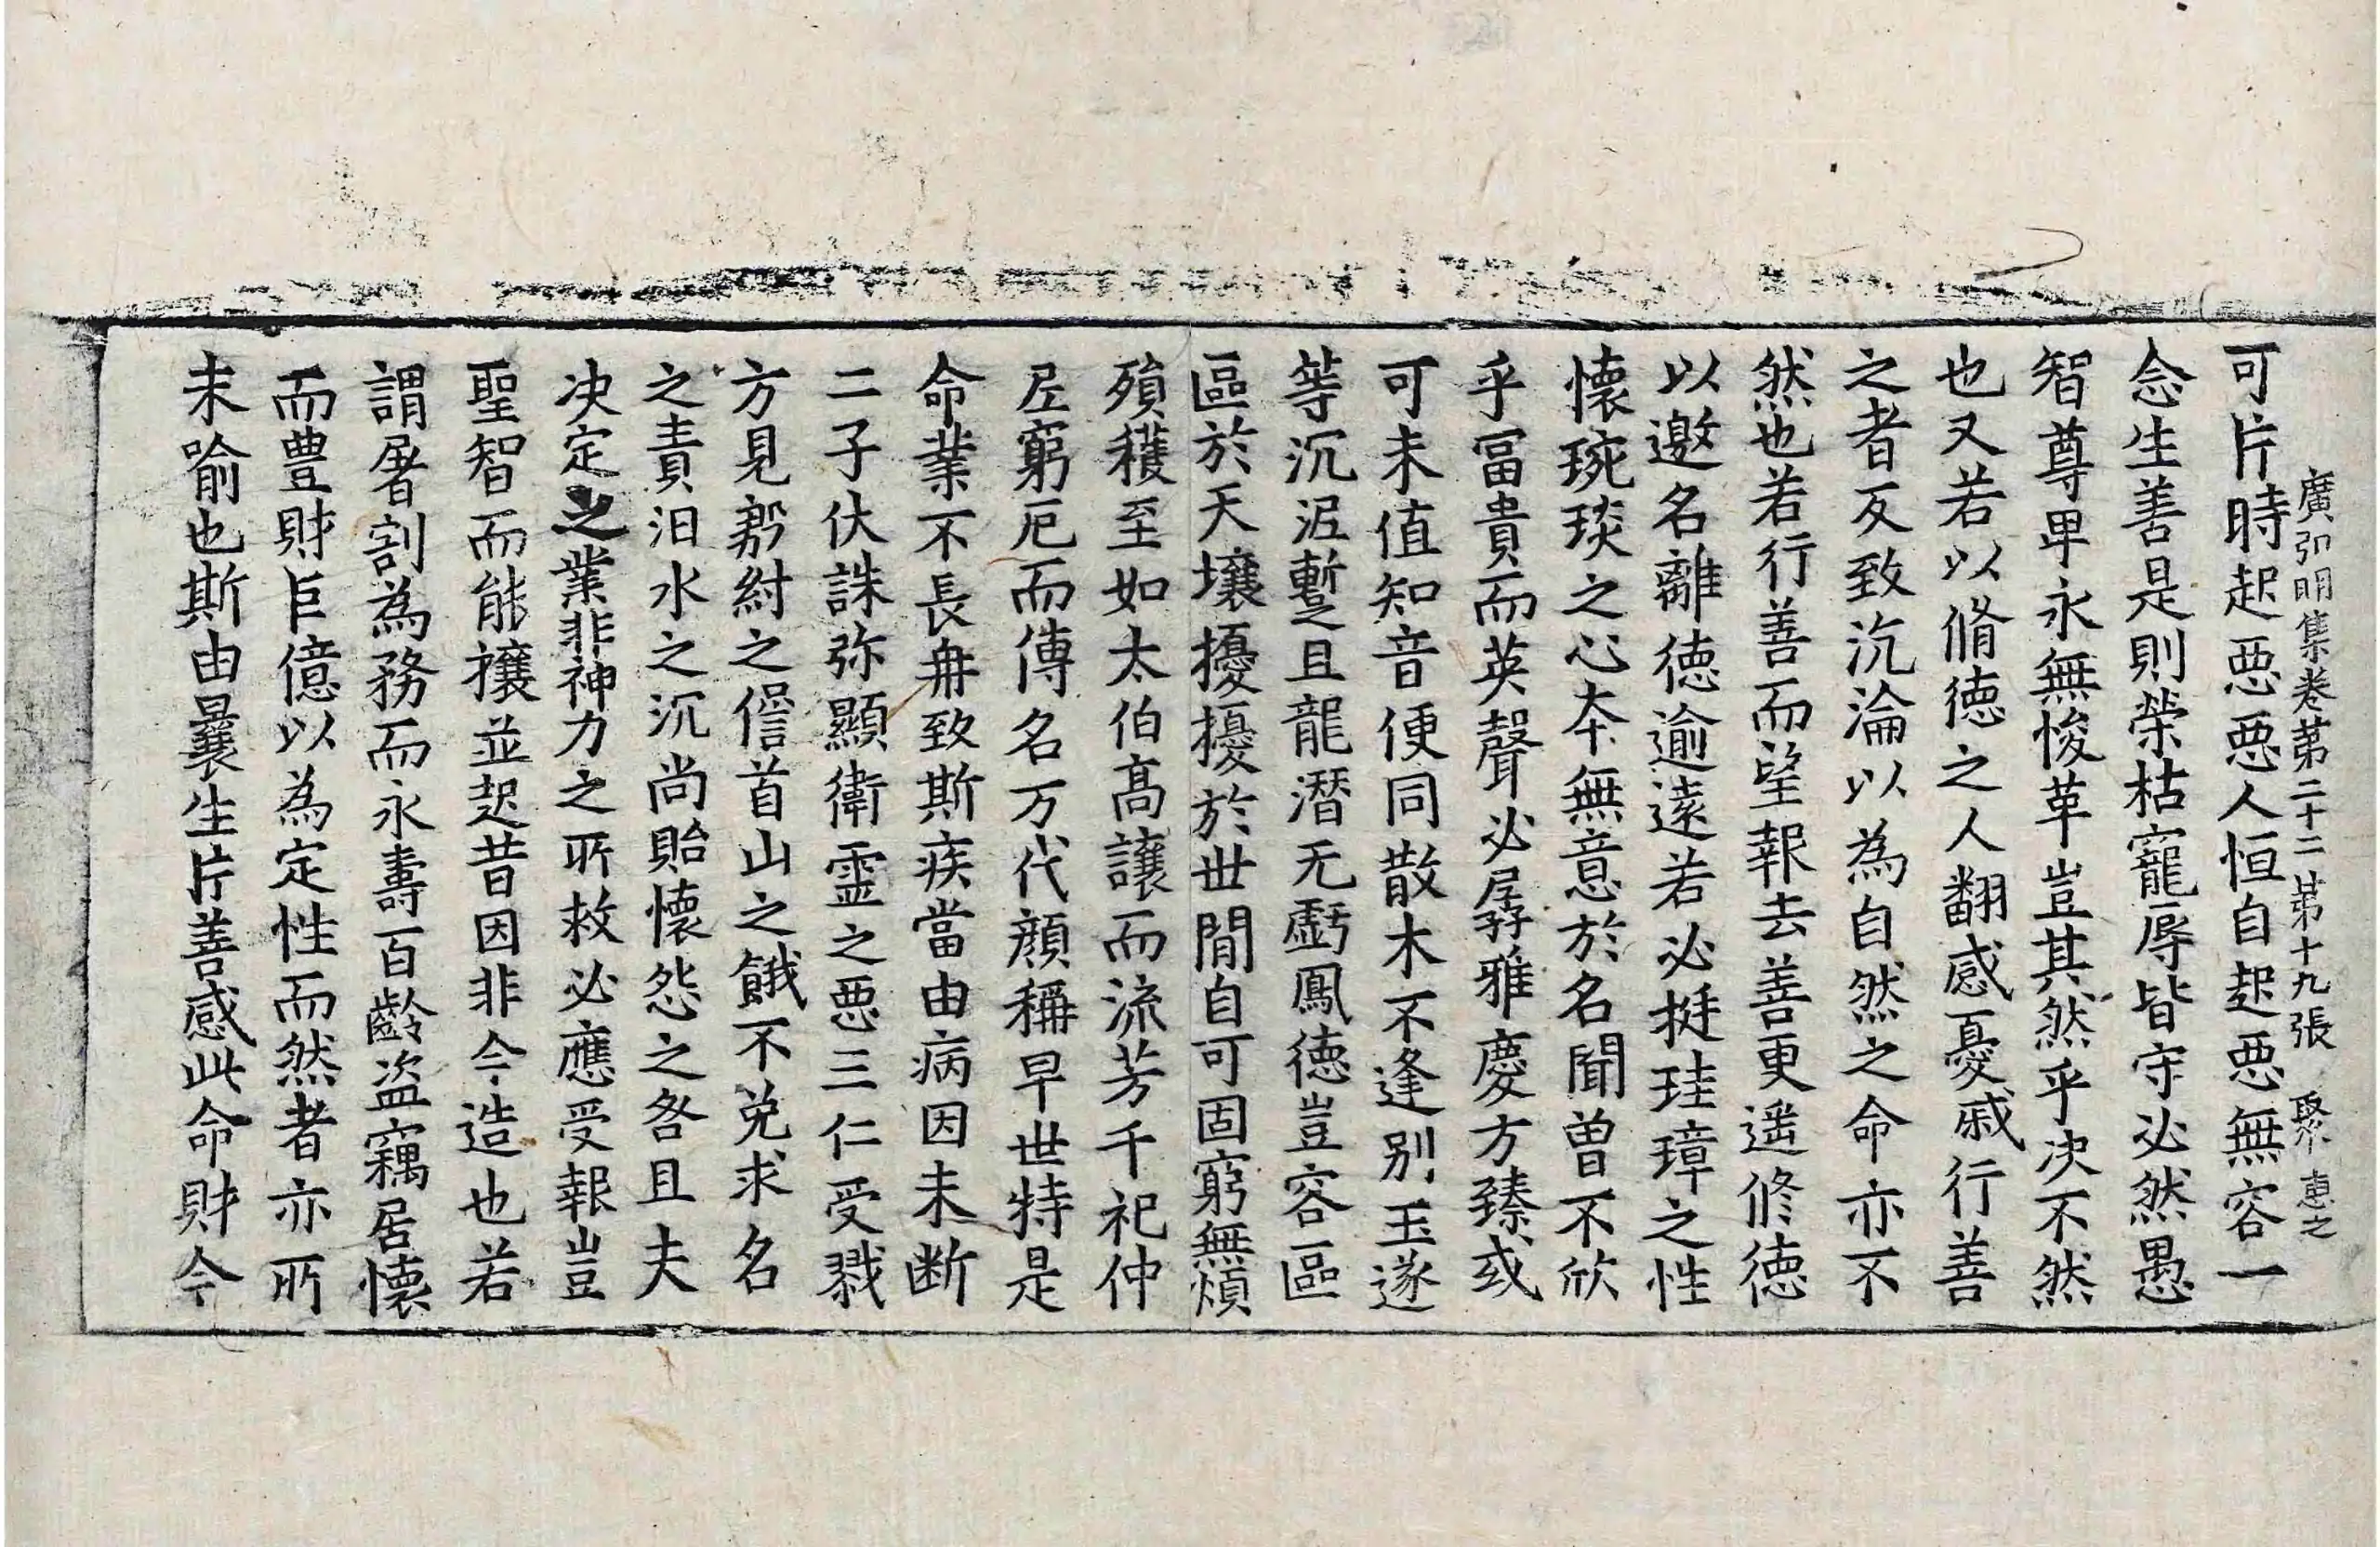 廣弘明集卷第二十二 第十九張 聚 惠之
可片時起惡惡人恒自起惡無容一
念生善是則榮枯寵辱皆守必然愚
智尊卑永無悛革豈其然乎决不然
也又若以脩德之人翻感憂戚行善
之者反致沉淪以為自然之命亦不
然也若行善而望報去善更遥修德
以邀名離德逾遠若必挺珪璋之性
懷琬琰之心本無意於名聞曾不欣
乎冨貴而英聲必孱雅慶方臻或
可未值知音便同散木不逢别玉遂
等沉泥蹔且龍潛无虧鳳德豈容區
區於天壤擾擾於世間自可固窮無煩
殞穫至如太伯高讓而流芳千祀仲
尼窮厄而傳名万代顔稱早世特是
命業不長冉致斯疾當由病因未断
二子伏誅弥顯衛靈之惡三仁受戮
方見殷紂之𠎝首山之餓不免求名
之責汨水之沉尚貽懷怨之咎且夫
决定之業非神力之所救必應受報豈
聖智而能禳並起昔因非今造也若
謂屠割為務而永壽百齡盗竊居懷
而豊財巨億以為定性而然者亦所
未喻也斯由曩生片善感此命財今